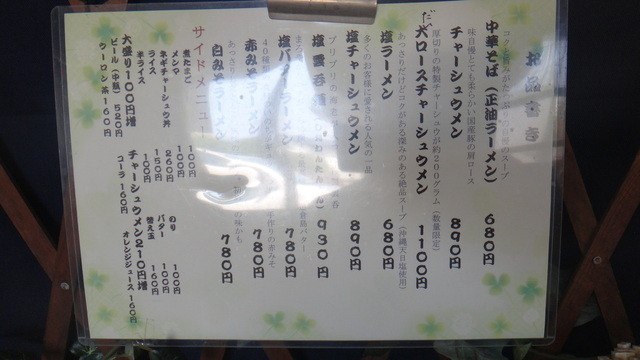 お品書き
コクと旨みがたっぷりの自慢のスープ
中華そば(正油ラーメン) 680円
味自慢とても柔らかい国産豚の肩ロース
チャーシュウメン 890円
厚切りの特製チャーシュウが約200グラム(数量限定)
大ロースチャーシュウメン 1100円
あっさりだけどコクがある深みのある絶品スープ(沖縄天日塩使用)
塩ラーメン 680円
多くのお客様に愛される人気の一品
塩チャーシュウメン 890円
プリプリの海老
塩雲呑麺(わんたんめん) 930円
塩バターラーメン 780円
赤みそラーメン 780円
白みそラーメン 780円
サイドメニュー
煮たまご 100円
メンマ 100円
ネギチャーシュウ丼 260円
ライス 150円
半ライス 100円
のり 100円
バター 100円
替え玉 160円
大盛り100円増 チャーシュウメン210円増
ビール(中瓶) 520円 コーラ 160円 オレンジジュース 160円
ウーロン茶 160円